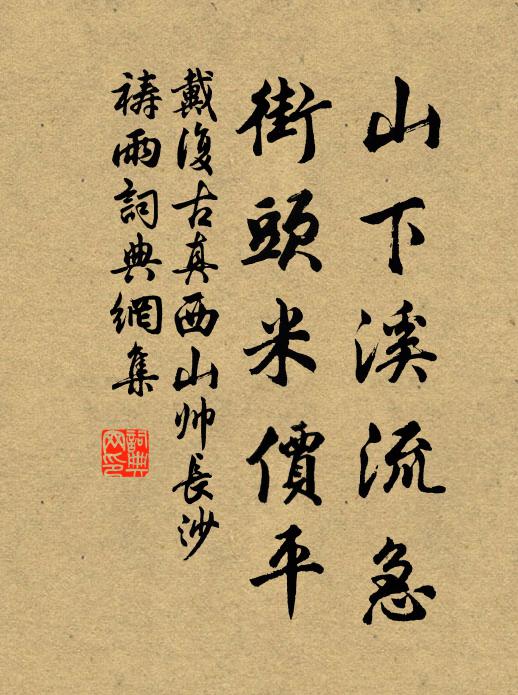 山下溪流急
街頭米價平
戴復古真西山帅長沙
禱雨詞典網集
詞典
网印